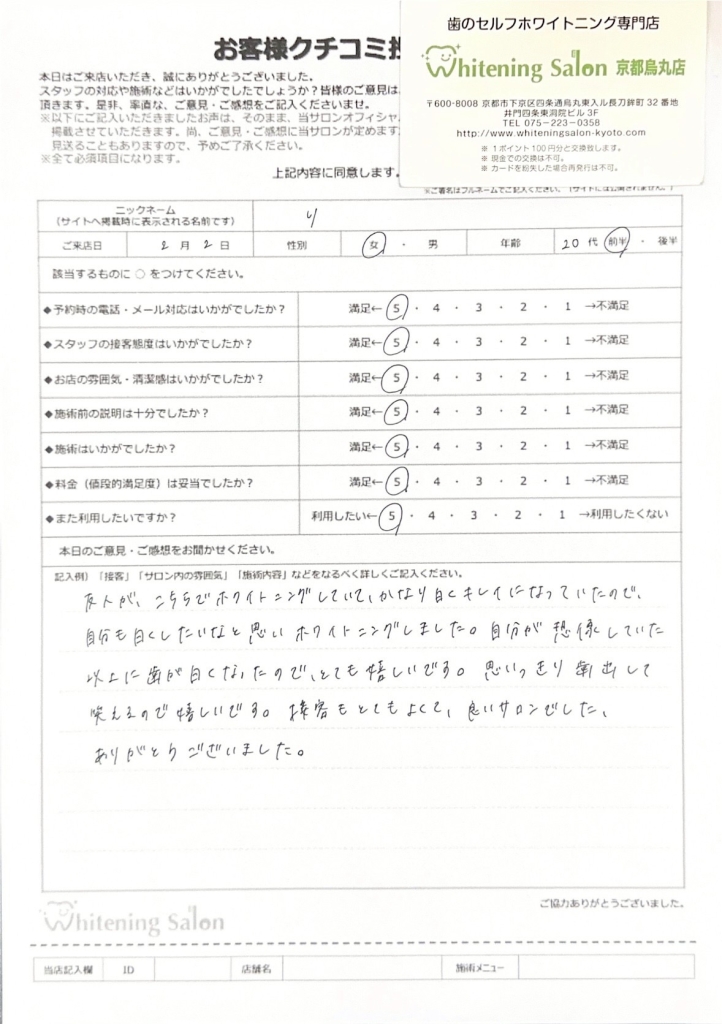 お客様クチコミ投
本日はご来店いただき、誠にありがとうございました。
スタッフの対応や施術などはいかがでしたでしょうか？皆様のご意見は
頂きます。是非、率直な、ご意見・ご感想をご記入くださいませ。
※以下にご記入いただきましたお声は、そのまま、当サロンオフィシャ
掲載させていただきます。尚、ご意見・ご感想に当サロンが定めます
見送ることもありますので、予めご了承ください。
※全て必須項目になります。
上記内容に同意します。
歯のセルフホワイトニング専門店
Whitening Salon 京都烏丸店
〒600-8008 京都市下京区四条通烏丸東入ル長刀鉾町 32 番地
井門四条東洞院ビル 3F
TEL 075-223-0358
http://www.whiteningsalon-kyoto.com
※ 1 ポイント 100 円分と交換致します。
※ 現金での交換は不可。
※ カードを紛失した場合再発行は不可。
※ご署名はフルネームでご記入ください。（サイトには公開されません。）
ニックネーム
（サイトへ掲載時に表示される名前です） り
ご来店日 2 月 2 日 性別 女 ・ 男 年齢 20 代 前半 ・ 後半
該当するものに ○ をつけてください。
◆予約時の電話・メール対応はいかがでしたか？ 満足← 5 ・ 4 ・ 3 ・ 2 ・ 1 →不満足
◆スタッフの接客態度はいかがでしたか？ 満足← 5 ・ 4 ・ 3 ・ 2 ・ 1 →不満足
◆お店の雰囲気・清潔感はいかがでしたか？ 満足← 5 ・ 4 ・ 3 ・ 2 ・ 1 →不満足
◆施術前の説明は十分でしたか？ 満足← 5 ・ 4 ・ 3 ・ 2 ・ 1 →不満足
◆施術はいかがでしたか？ 満足← 5 ・ 4 ・ 3 ・ 2 ・ 1 →不満足
◆料金（値段的満足度）は妥当でしたか？ 満足← 5 ・ 4 ・ 3 ・ 2 ・ 1 →不満足
◆また利用したいですか？ 利用したい← 5 ・ 4 ・ 3 ・ 2 ・ 1 →利用したくない
本日のご意見・ご感想をお聞かせください。
記入例）「接客」「サロン内の雰囲気」「施術内容」などをなるべく詳しくご記入ください。
友人が、こちらでホワイトニングしていて、かなり白くキレイになっていたので、
自分も白くしたいなと思いホワイトニングしました。自分が想像していた
以上に歯が白くなったので、とても嬉しいです。思いっきり歯出して
笑えるので嬉しいです。接客もとてもよくて、良いサロンでした、
ありがとうございました。
ご協力ありがとうございました。
Whitening Salon
当店記入欄 ID 店舗名 施術メニュー